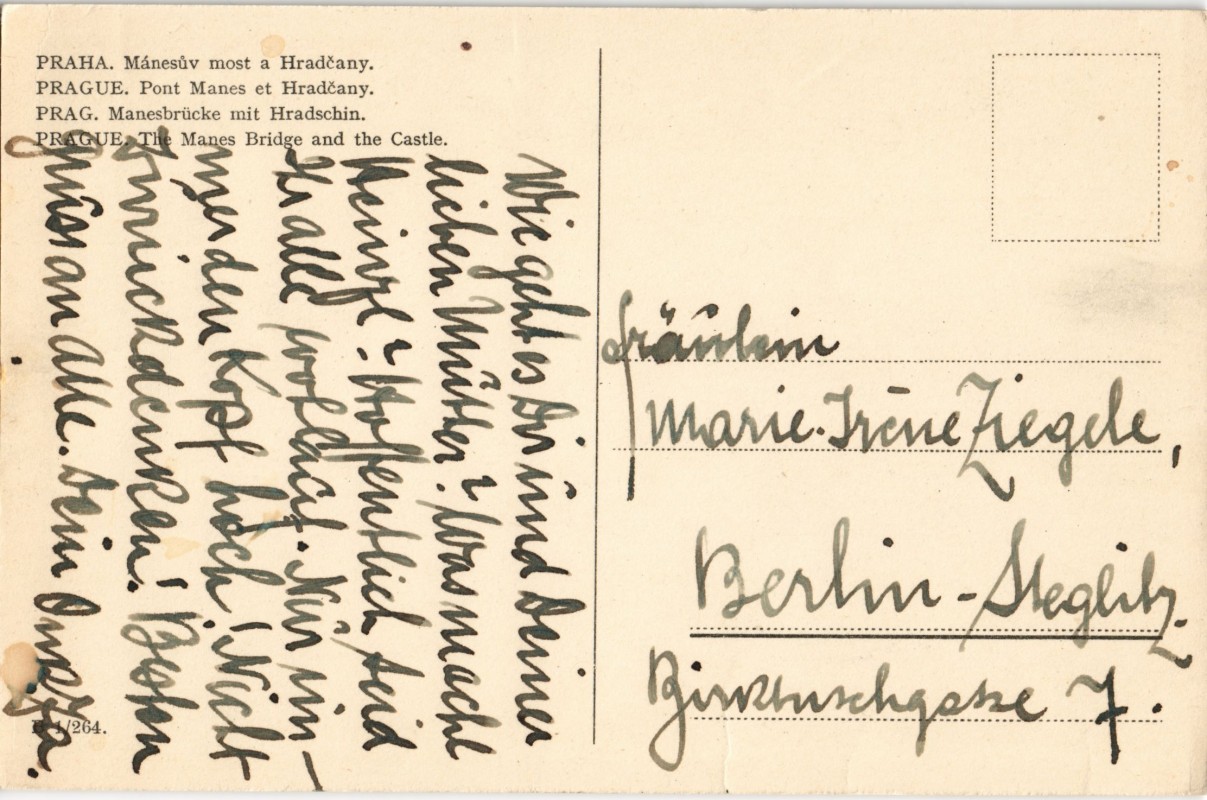 PRAHA. Mánesův most a Hradčany.
PRAGUE. Pont Manes et Hradčany.
PRAG. Manesbrücke mit Hradschin.
PRAGUE. The Manes Bridge and the Castle.
Wie geht es Dir und Deiner
lieben Mutter? Was macht
Heinzl? Hoffentlich seid
Ihr alle wohlauf. Nur im-
mer den Kopf hoch! Nicht
zurückdenken! Besten
Gruss an alle. Dein Onkel
B 1/264.
Fräulein
Marie-Irene Ziegele,
Berlin-Steglitz.
7.